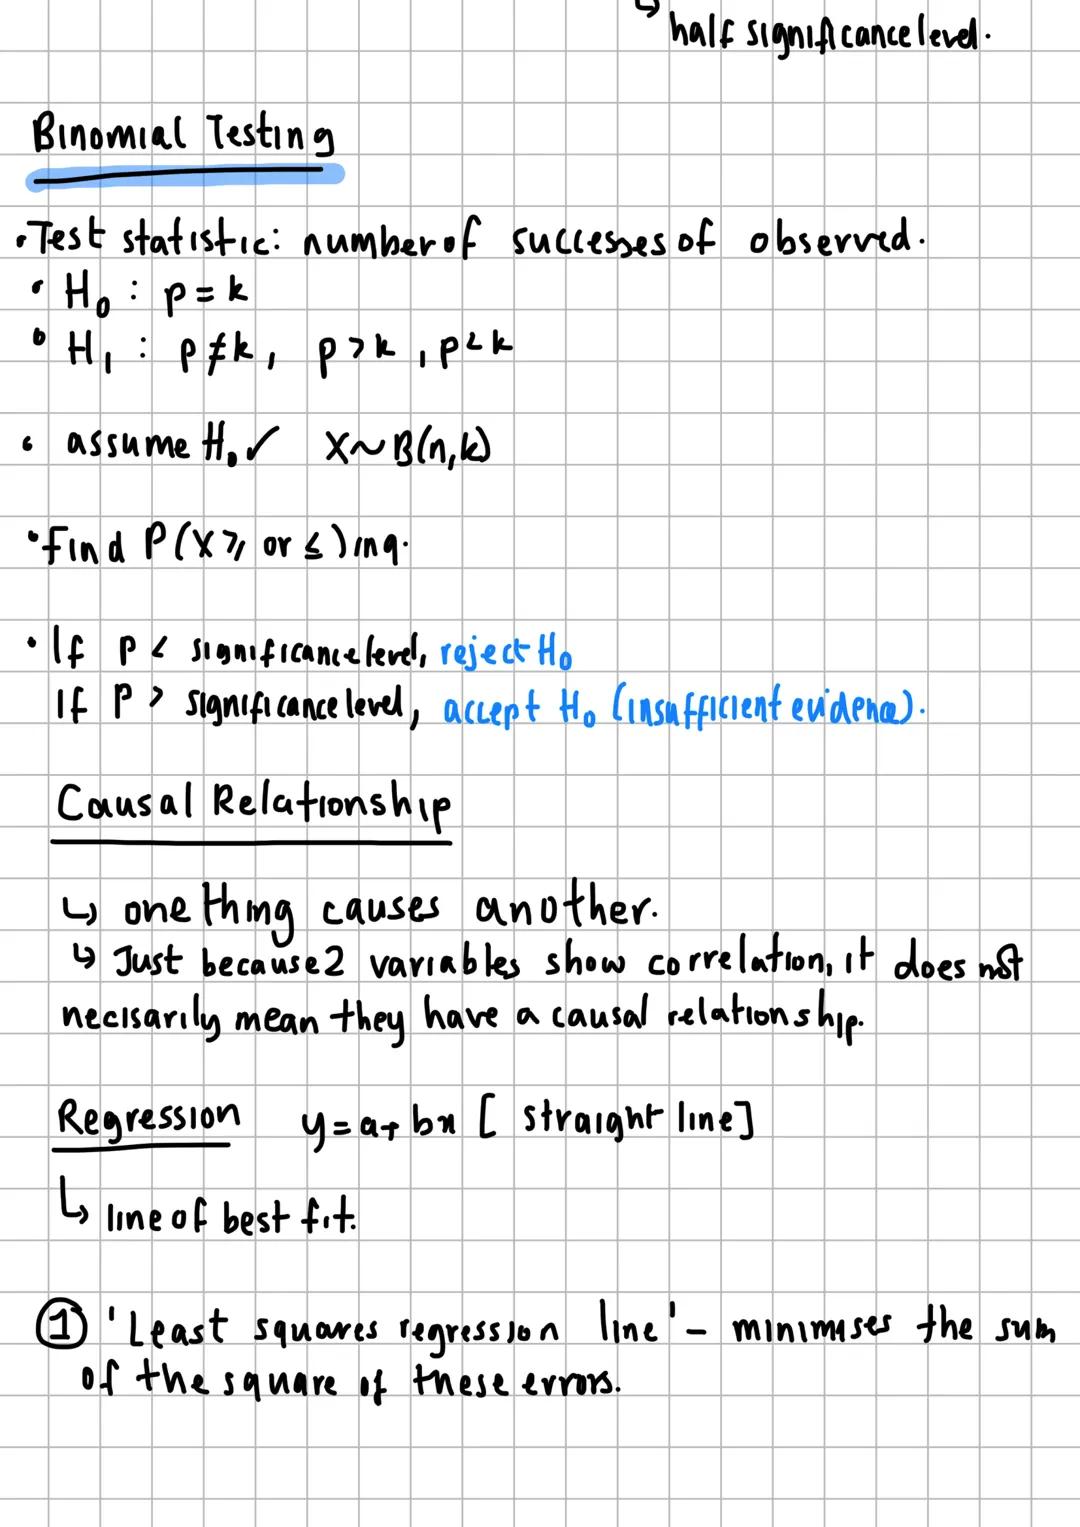 ↳ half significance level.
Binomial Testing
• Test statistic: number of successes of observed.
• H₀ : p = k
• H₁ : p ≠ k, p > k, p < k
• assume H₀ ✓ X~B(n,k)
• find P(X ≥ or ≤) in q.
• If P < significance level, reject H₀
If P > significance level, accept H₀ (insufficient evidence).
Causal Relationship
↳ one thing causes another.
↳ Just because 2 variables show correlation, it does not
necisarily mean they have a causal relationship.
Regression y = a + bx [straight line]
↳ line of best fit.
① 'Least squares regression line' - minimises the sum
of the square of these errors.